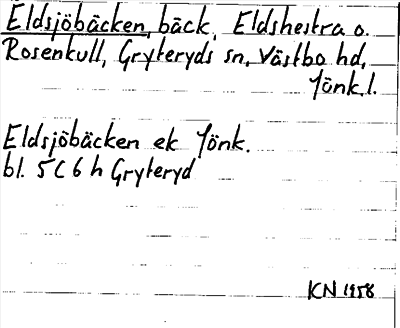 Eldsjöbäcken, bäck, Eldshestra o.
Rosenkull, Gryteryds sn, Västbo hd,
Jönk.l.
Eldsjöbäcken ek Jönk.
bl. 5C6h Gryteryd
KN 1958